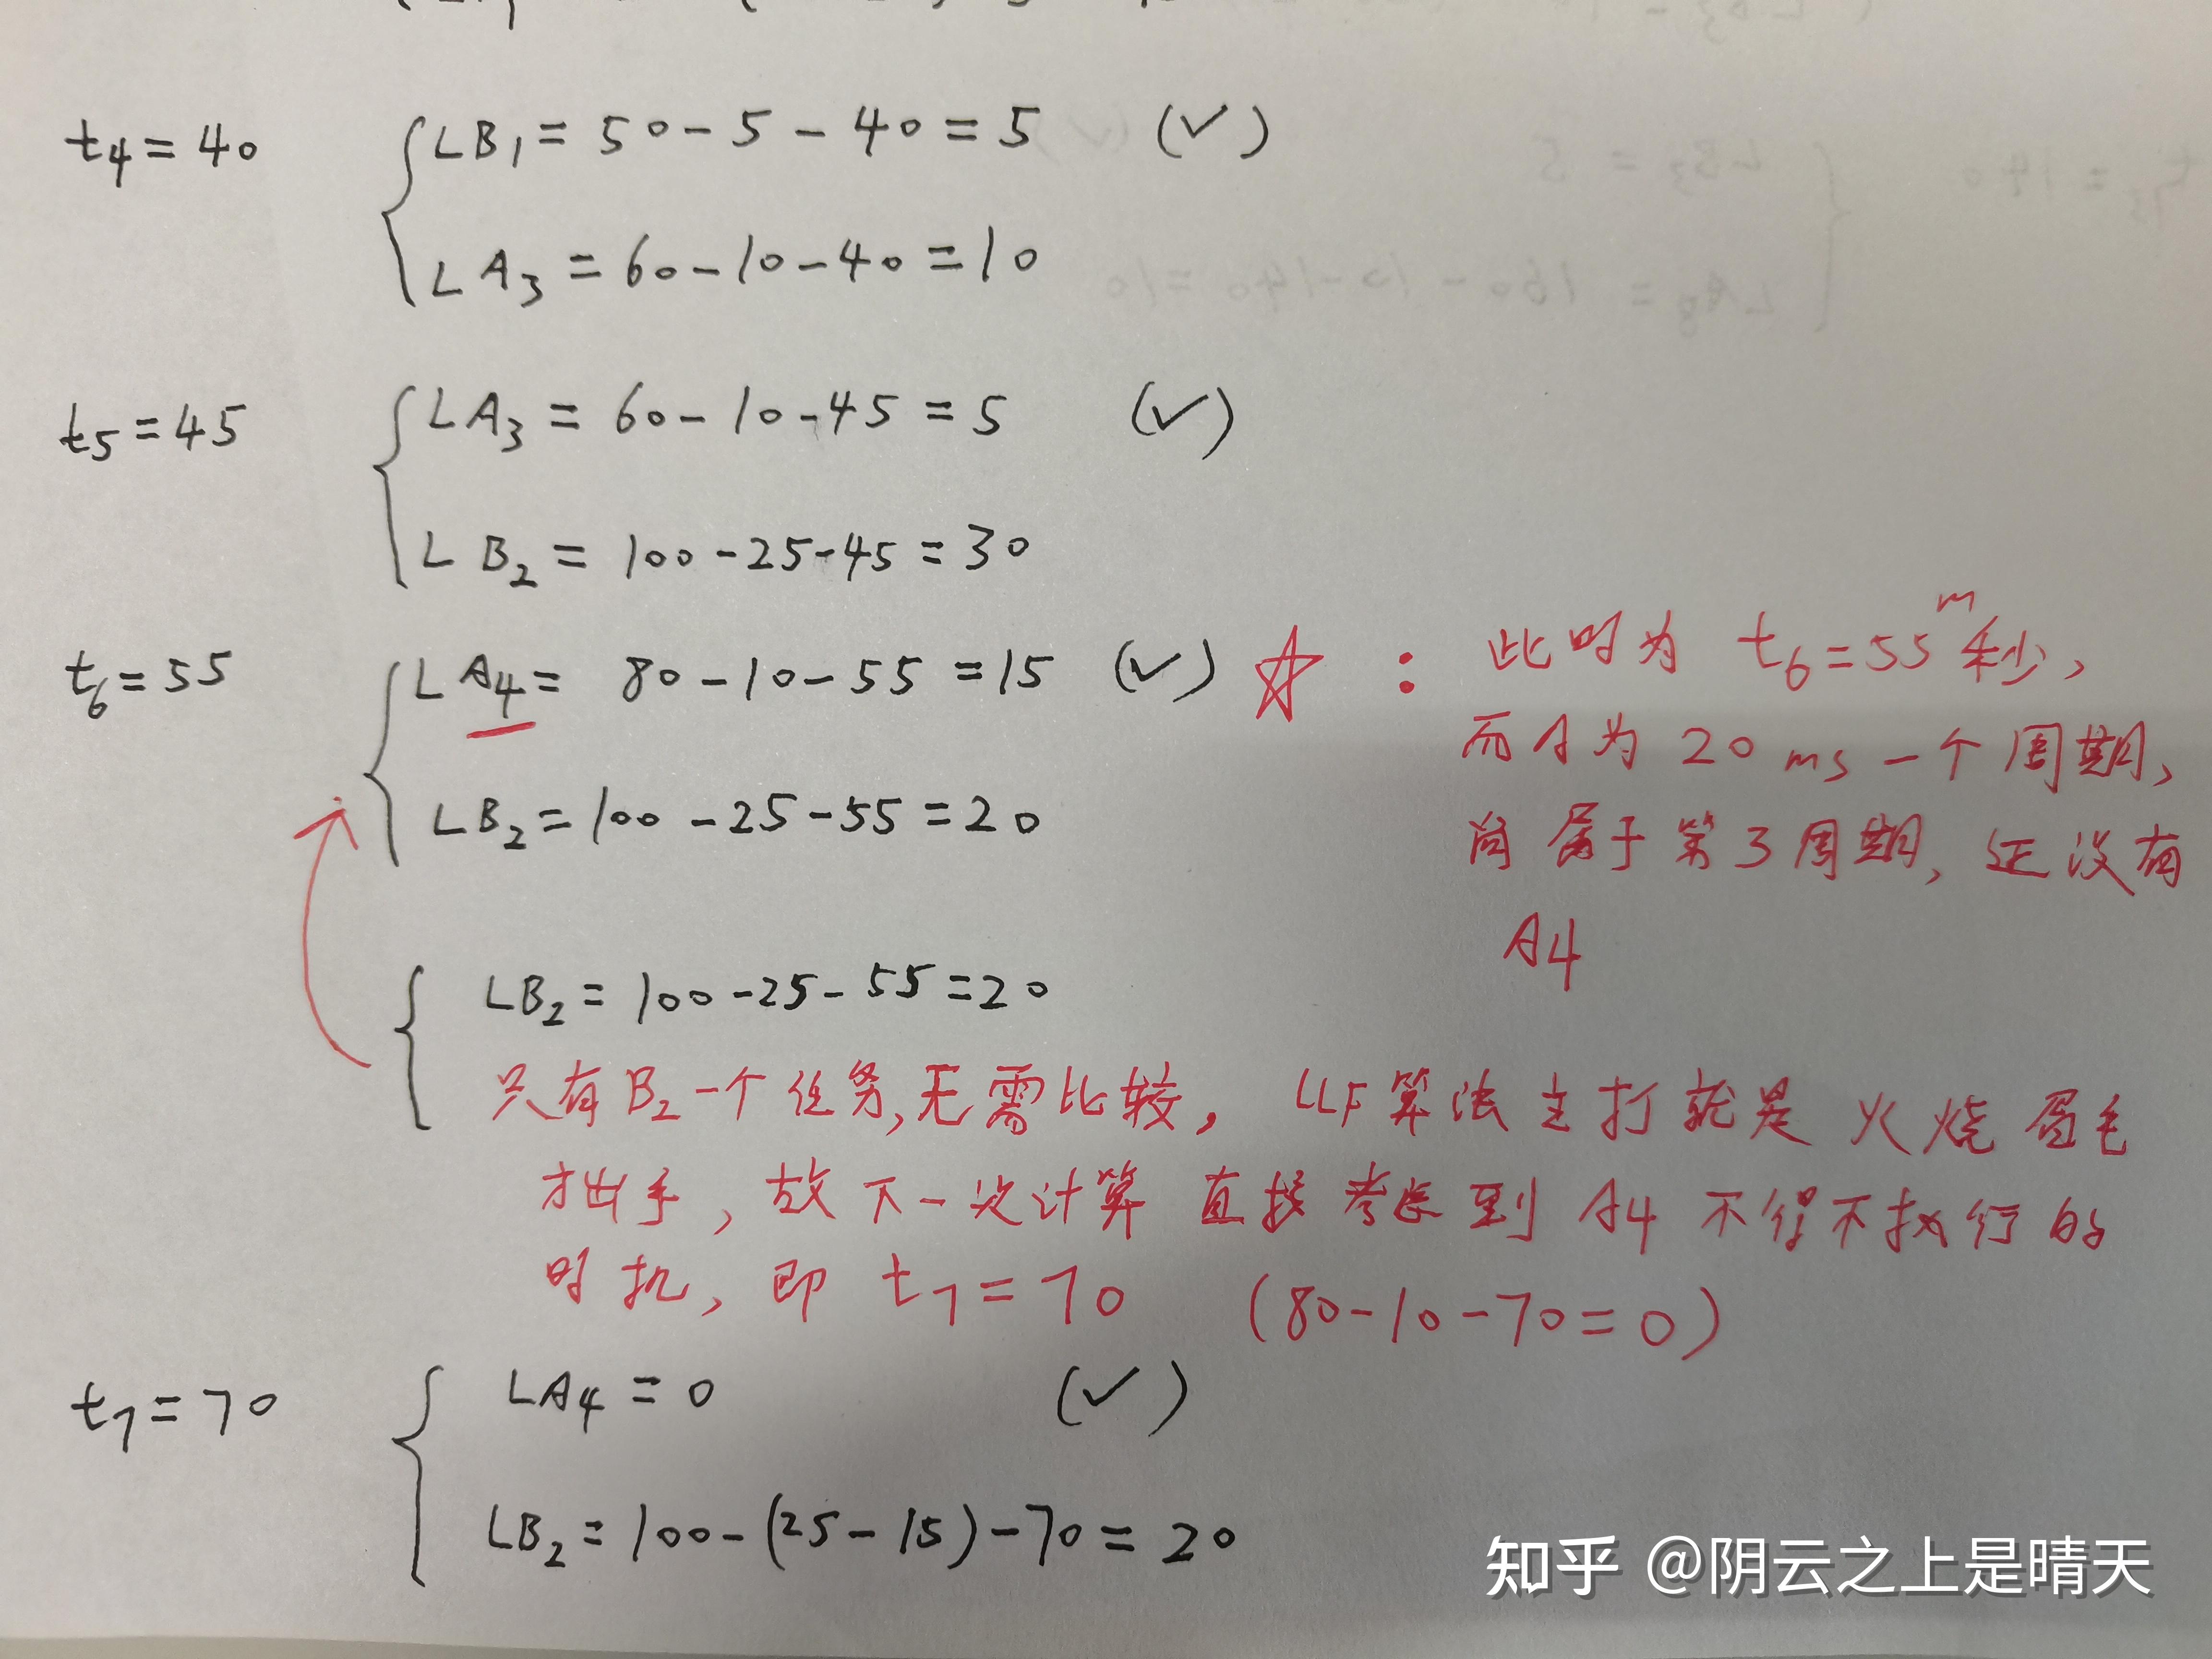 t4=40
LB1 = 50-5-40=5 (✓)
LA3 = 60-10-40=10
t5=45
LA3 = 60-10-45=5 (✓)
LB2 = 100-25-45=30
t6=55
LA4= 80-10-55=15 (✓) ☆ : 此时为 t6=55m秒,
而A为20ms一个周期,
尚属于第3周期,还没有
A4
LB2=100-25-55=20
LB2= 100-25-55=20
只有B2一个任务,无需比较, LLF算法主打就是火烧眉毛
才出手,故下一次计算直接考虑到A4不得不执行的
时机,即 t7=70 (80-10-70=0)
t7=70
LA4=0 (✓)
LB2=100-(25-15)-70=20
知乎 @阴云之上是晴天